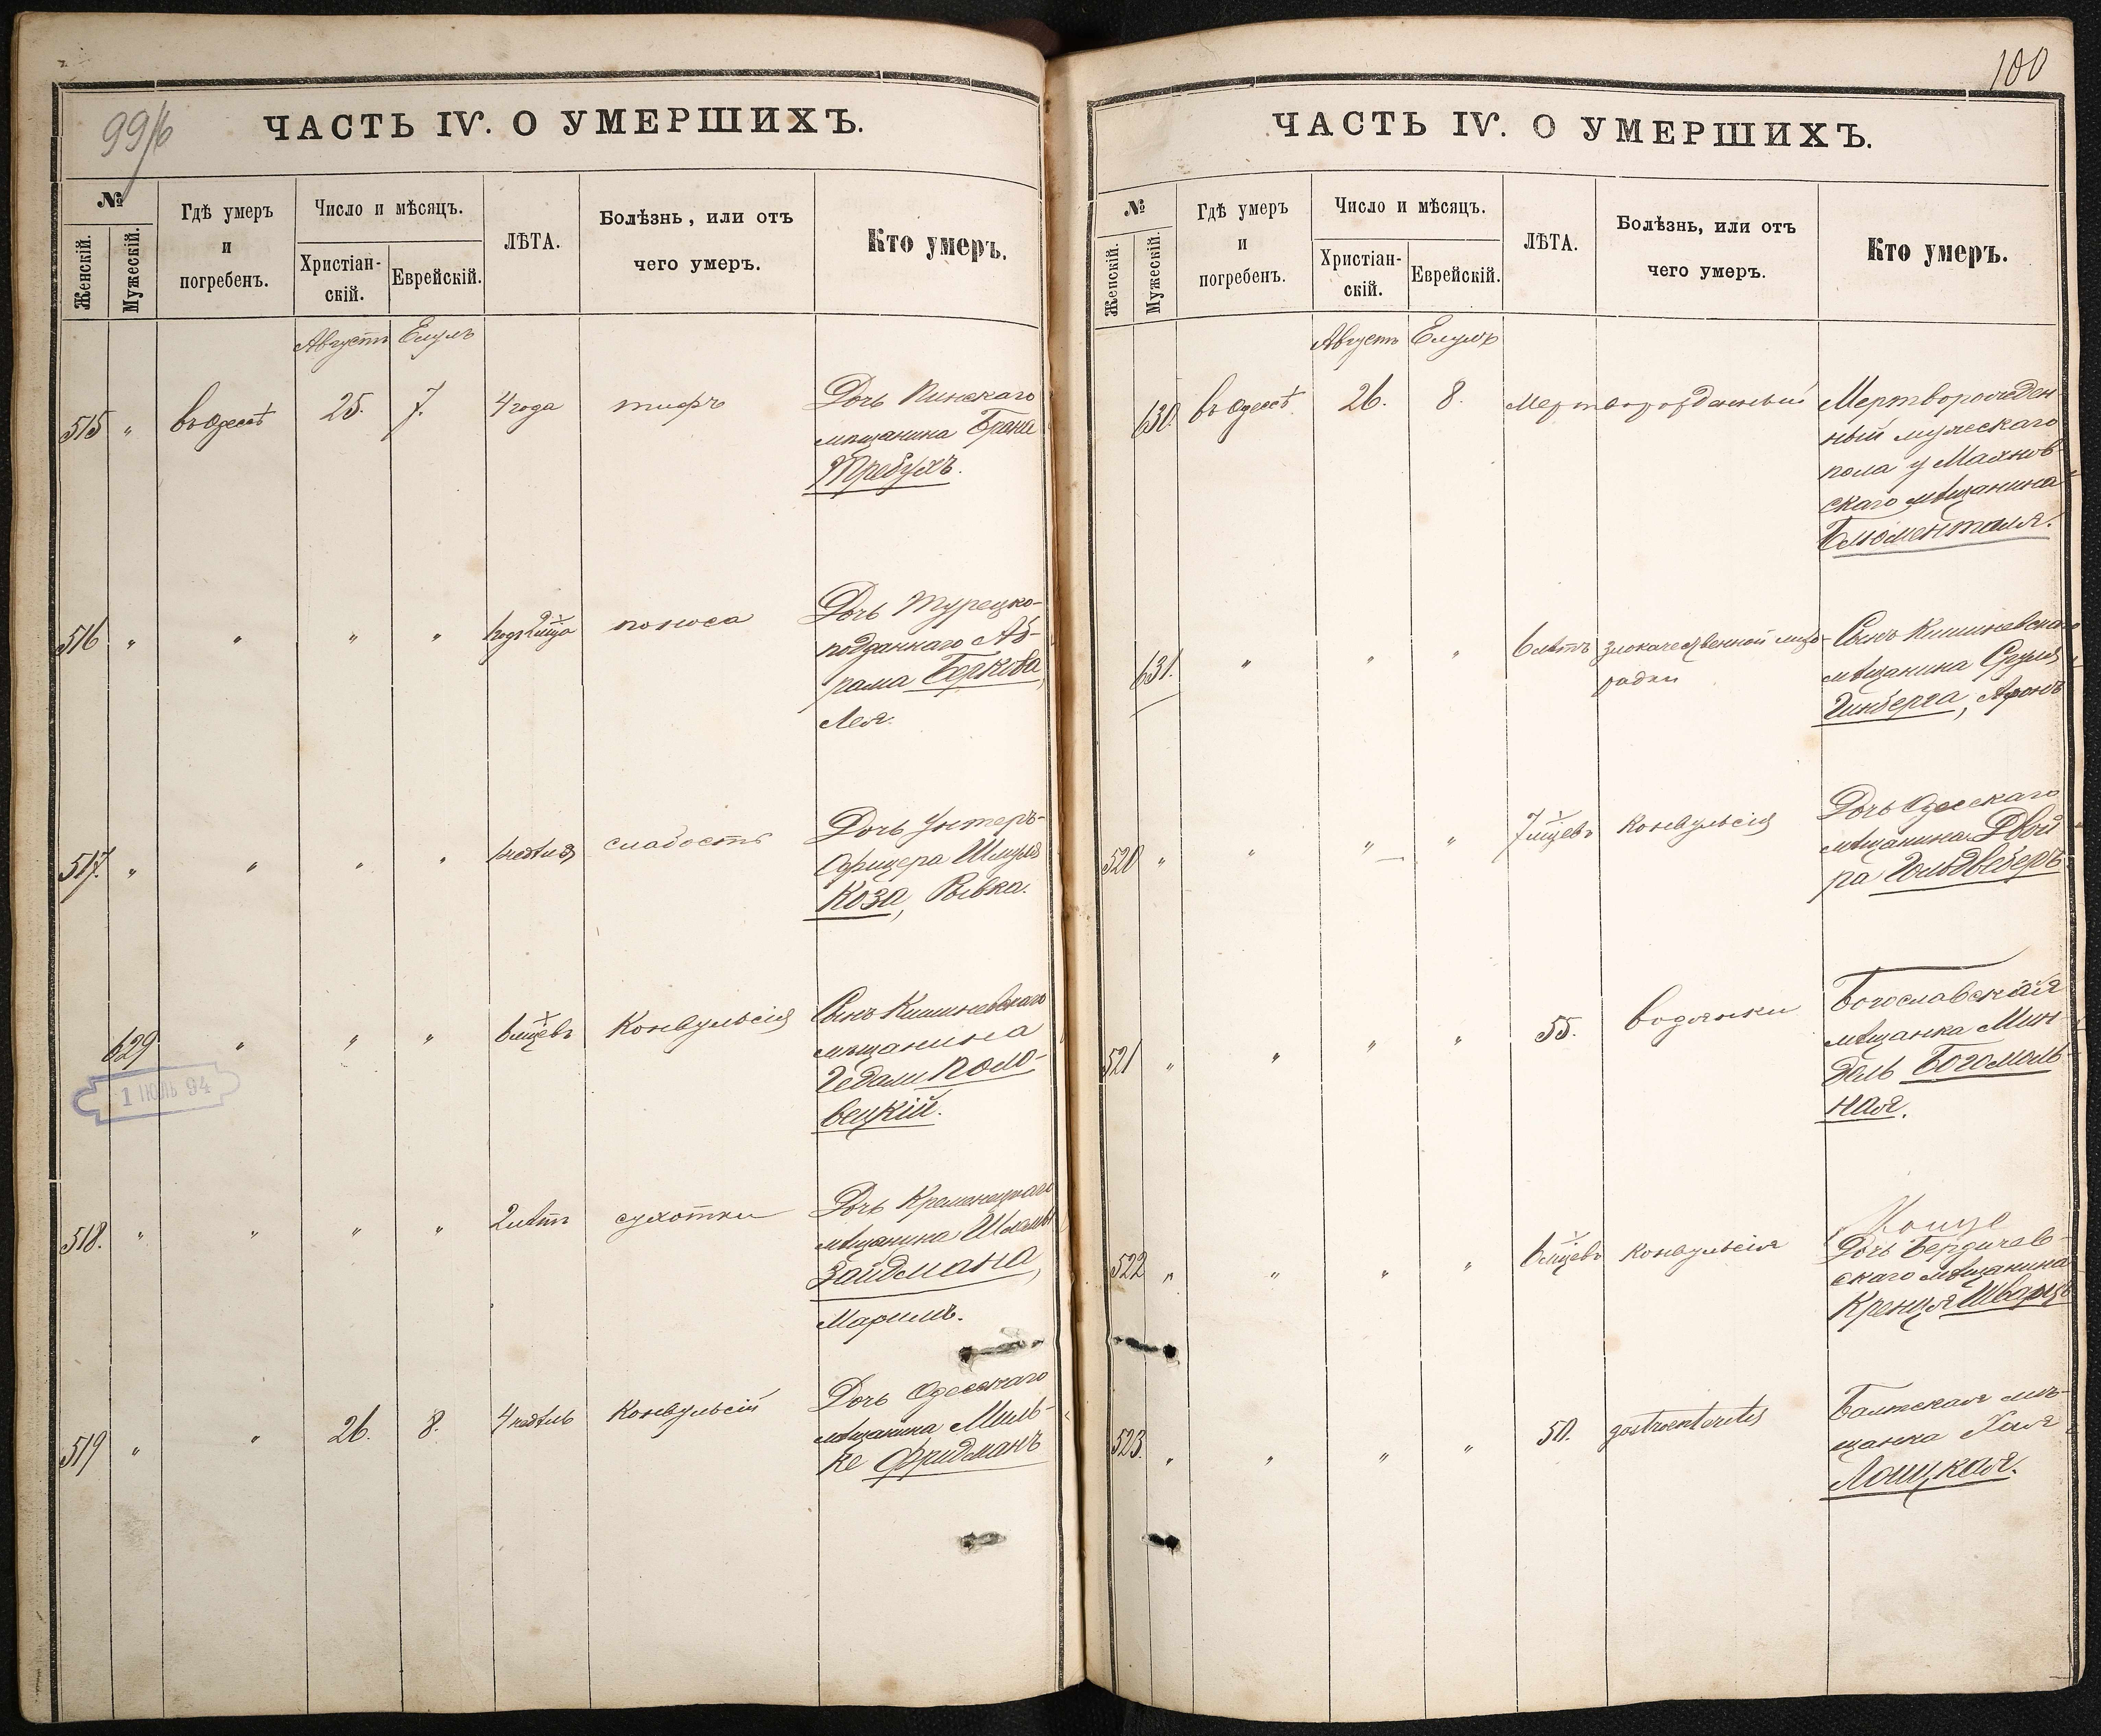 99/б
ЧАСТЬ IV. О УМЕРШИХЪ.
№
Женскій.
Мужескій.
Гдѣ умеръ
и
погребенъ.
Число и мѣсяцъ.
Христіан-
скій.
Еврейскій.
ЛѢТА.
Болѣзнь, или отъ
чего умеръ.
Кто умеръ.
Августъ Елулъ
515 " въ Одессѣ 25. 7. 4 года тифъ Дочь Пинскаго
мѣщанина Брана
Требухъ.
516 " " " " поноса Дочь Турецко-
подданнаго Аб-
рама Беркова,
Лея.
517. " " " " слабость Дочь Унтеръ-
офицера Шмуля
Коза, Рывка.
629 " " " 6 мцевъ Конвульсія Сынъ Кишиневскаго
мѣщанина
Гедали Поло-
вецкій.
1 ІЮЛЬ 94
518. " " " " 2 лѣтъ сухотки Дочь Кременецкаго
мѣщанина
Зайдмана,
Маримъ.
519 " " 26. 8. 4 недѣль Конвульсій Дочь Одесскаго
мѣщанина Миль-
ке Фридманъ
100
ЧАСТЬ IV. О УМЕРШИХЪ.
№
Женскій.
Мужескій.
Гдѣ умеръ
и
погребенъ.
Число и мѣсяцъ.
Христіан-
скій.
Еврейскій.
ЛѢТА.
Болѣзнь, или отъ
чего умеръ.
Кто умеръ.
Августъ Елулъ
630. въ Одессѣ 26. 8. Мертворожденный Мертворожден-
ный мужескаго
пола у Маянов-
скаго мѣщанина
Блюменталя.
631. " " " 6 лѣтъ злокачественной лихо-
радки
Сынъ Кишиневскаго
мѣщанина Сруля
Гинберга, Аронъ
520 " " " " 7 мцевъ Конвульсія Дочь Одесскаго
мѣщанина Двой
ра Гольдвеберъ
521 " " " " 55. водянки Богославская
мѣщанка Мин-
дель Богомоль-
ная.
522 " " " " 6 мцевъ Конвульсія
Дочь Бердичев-
скаго мѣщанина
Кренця Шварцъ
523. " " " " 50. gastroenteritis Балтская мѣ-
щанка Хая